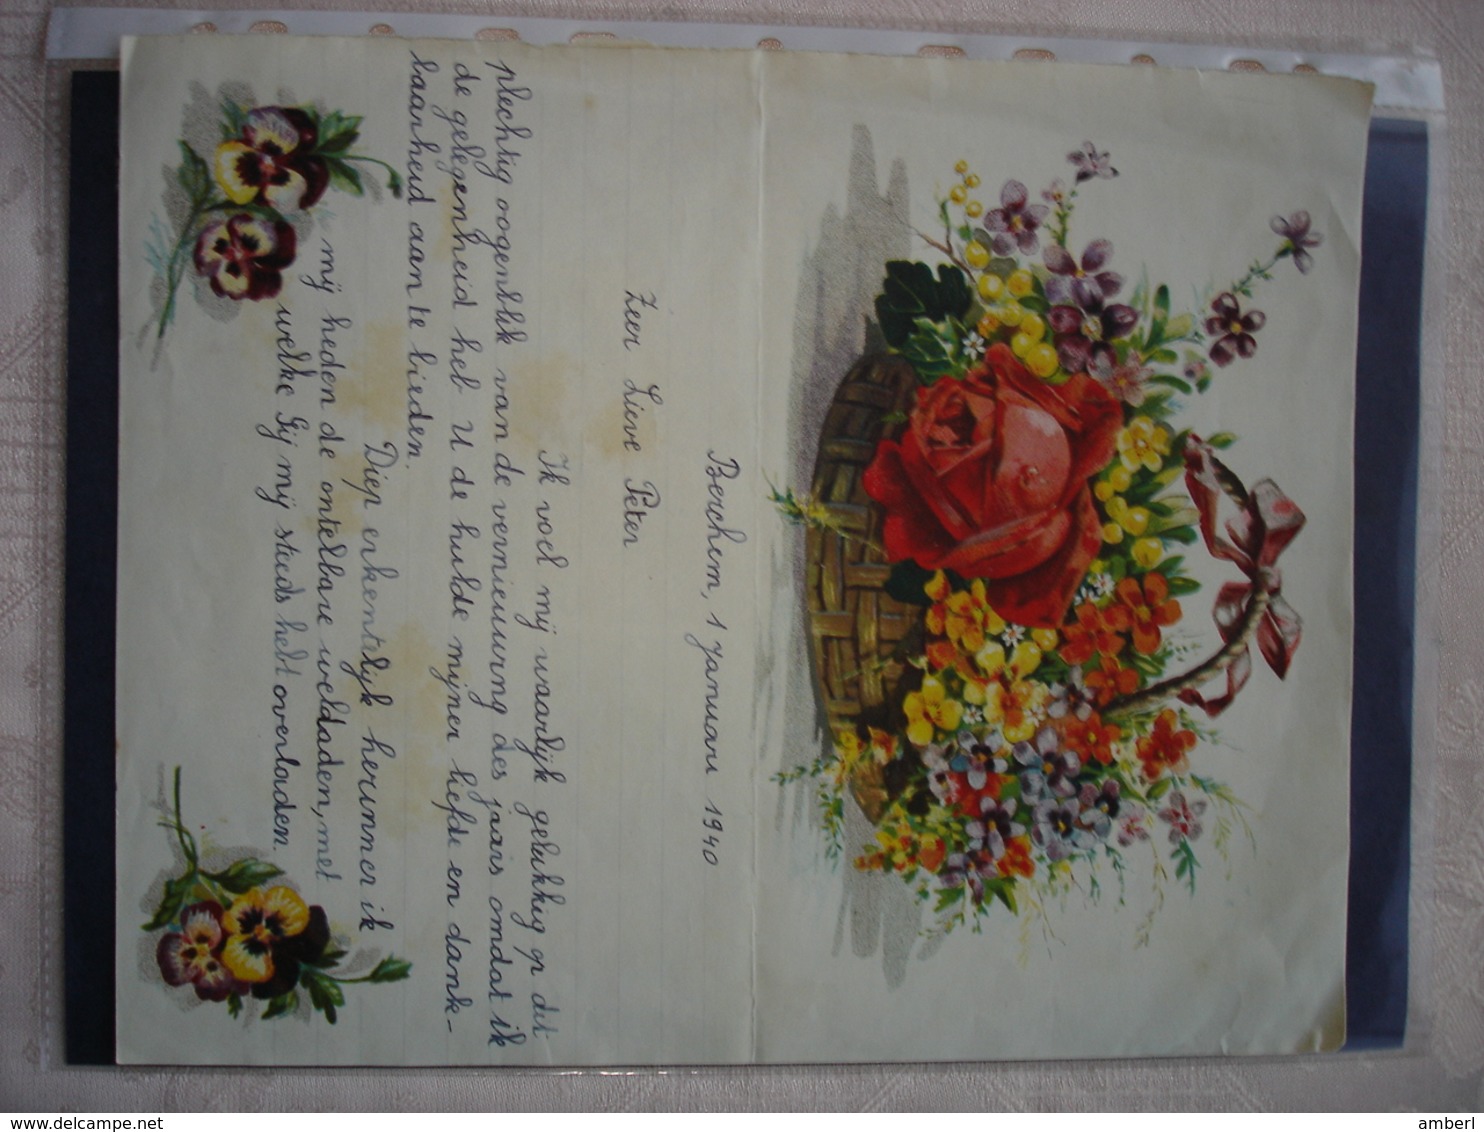 Berchem, 1 Januari 1940
Zeer Lieve Peter
Ik voel mij waarlijk gelukkig op dit
plechtig oogenblik van de vernieuwing des jaars omdat ik
de gelegenheid heb U de hulde mijner liefde en dank-
baarheid aan te bieden.
Diep erkentelijk herinner ik
mij heden de ontelbare weldaden, met
welke Gij mij steeds hebt overladen.
amberl